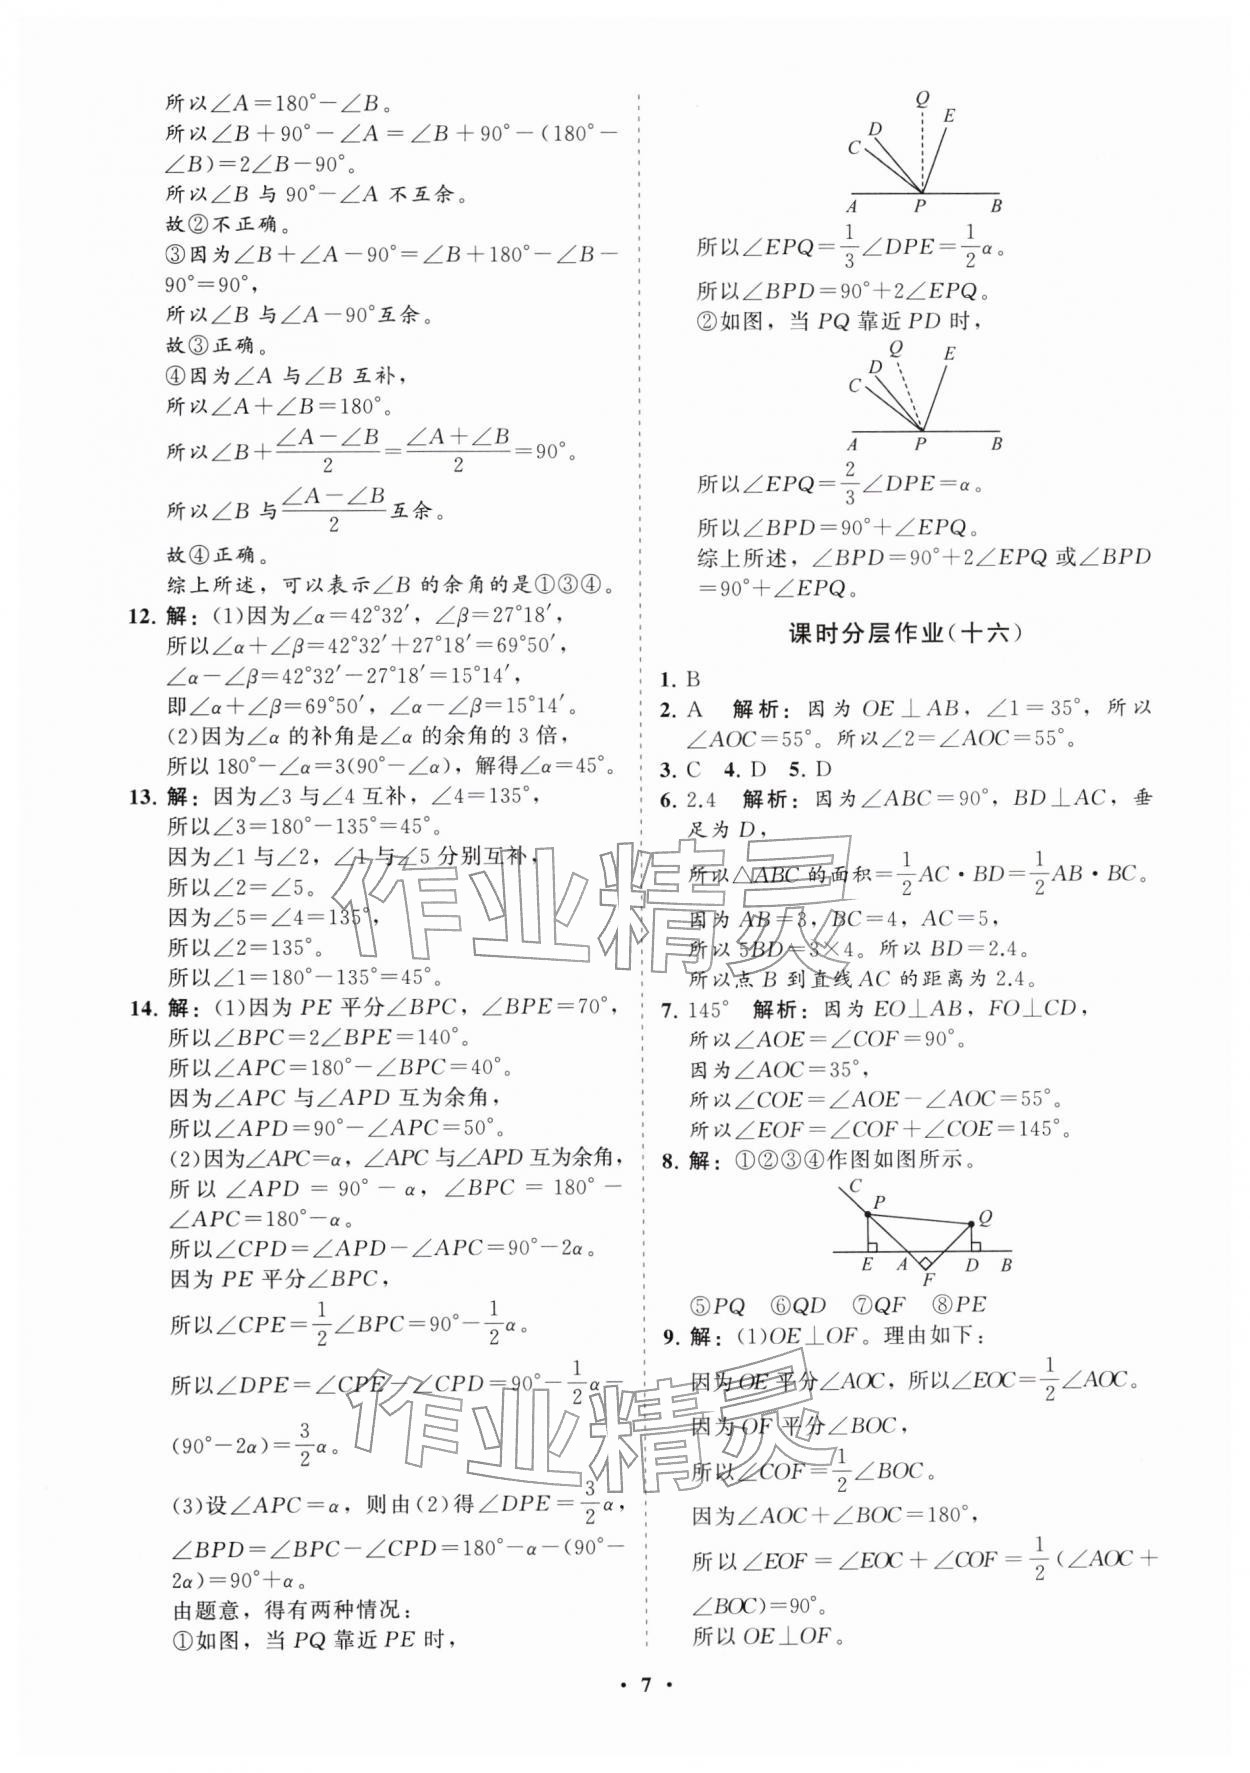 所以∠A=180°-∠B。
所以∠B+90°-∠A=∠B+90°-(180°-
∠B)=2∠B-90°。
所以∠B与90°-∠A不互余。
故②不正确。
③因为∠B+∠A-90°=∠B+180°-∠B-
90°=90°,
所以∠B与∠A-90°互余。
故③正确。
④因为∠A与∠B互补,
所以∠A+∠B=180°。
所以∠B+(∠A-∠B)/2=(∠A+∠B)/2=90°。
所以∠B与(∠A-∠B)/2互余。
故④正确。
综上所述,可以表示∠B的余角的是①③④。
12. 解:(1)因为∠α=42°32′,∠β=27°18′,
所以∠α+∠β=42°32′+27°18′=69°50′,
∠α-∠β=42°32′-27°18′=15°14′,
即∠α+∠β=69°50′,∠α-∠β=15°14′。
(2)因为∠α的补角是∠α的余角的3倍,
所以180°-∠α=3(90°-∠α),解得∠α=45°。
13. 解:因为∠3与∠4互补,∠4=135°,
所以∠3=180°-135°=45°。
因为∠1与∠2,∠1与∠5分别互补,
所以∠2=∠5。
因为∠5=∠4=135°,
所以∠2=135°。
所以∠1=180°-135°=45°。
14. 解:(1)因为PE平分∠BPC,∠BPE=70°,
所以∠BPC=2∠BPE=140°。
所以∠APC=180°-∠BPC=40°。
因为∠APC与∠APD互为余角,
所以∠APD=90°-∠APC=50°。
(2)因为∠APC=α,∠APC与∠APD互为余角,
所以∠APD=90°-α,∠BPC=180°-
∠APC=180°-α。
所以∠CPD=∠APD-∠APC=90°-2α。
因为PE平分∠BPC,
所以∠CPE=1/2∠BPC=90°-1/2α。
所以∠DPE=∠CPE-∠CPD=90°-1/2α-
(90°-2α)=3/2α。
(3)设∠APC=α,则由(2)得∠DPE=3/2α,
∠BPD=∠BPC-∠CPD=180°-α-(90°-
2α)=90°+α。
由题意,得有两种情况:
①如图,当PQ靠近PE时,
Q
E
D
C
A P B
所以∠EPQ=1/3∠DPE=1/2α。
所以∠BPD=90°+2∠EPQ。
②如图,当PQ靠近PD时,
Q E
D
C
A P B
所以∠EPQ=2/3∠DPE=α。
所以∠BPD=90°+∠EPQ。
综上所述,∠BPD=90°+2∠EPQ或∠BPD
=90°+∠EPQ。
课时分层作业(十六)
1. B
2. A 解析:因为OE⊥AB,∠1=35°,所以
∠AOC=55°。所以∠2=∠AOC=55°。
3. C 4. D 5. D
6. 2.4 解析:因为∠ABC=90°,BD⊥AC,垂
足为D,
所以△ABC的面积=1/2AC·BD=1/2AB·BC。
因为AB=3,BC=4,AC=5,
所以5BD=3×4。所以BD=2.4。
所以点B到直线AC的距离为2.4。
7. 145° 解析:因为EO⊥AB,FO⊥CD,
所以∠AOE=∠COF=90°。
因为∠AOC=35°,
所以∠COE=∠AOE-∠AOC=55°。
所以∠EOF=∠COF+∠COE=145°。
8. 解:①②③④作图如图所示。
C
P
Q
E A F D B
⑤PQ ⑥QD ⑦QF ⑧PE
9. 解:(1)OE⊥OF。理由如下:
因为OE平分∠AOC,所以∠EOC=1/2∠AOC。
因为OF平分∠BOC,
所以∠COF=1/2∠BOC。
因为∠AOC+∠BOC=180°,
所以∠EOF=∠EOC+∠COF=1/2(∠AOC+
∠BOC)=90°。
所以OE⊥OF。
作业精灵
作业精灵
• 7 •